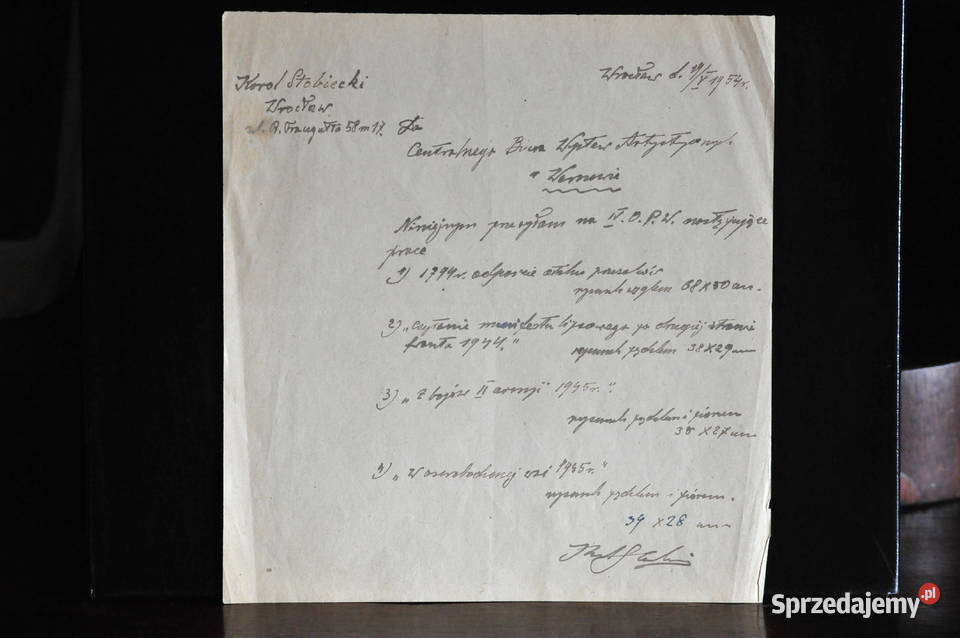 Wrocław d. 19/V 1954r.
Karol Stobiecki
Wrocław
ul. R. Traugutta 58 m 17.
Do
Centralnego Biura Wystaw Artystycznych
w Warszawie
Niniejszym przesyłam na IV. O.P.W. następujące
prace
1) 1794r. odparcie ataku
rysunek węglem 68 X 50 cm.
2) „Czytanie manifestu lipcowego po drugiej stronie
frontu 1944."
rysunek pędzlem 38 X 29 cm
3) „Z bojów II armji" 1945r."
rysunek pędzlem i piórem
38 X 27 cm
4) „W oswobodzonej wsi 1945r."
rysunek pędzlem i piórem.
39 X 28 cm
Sprzedajemy.pl